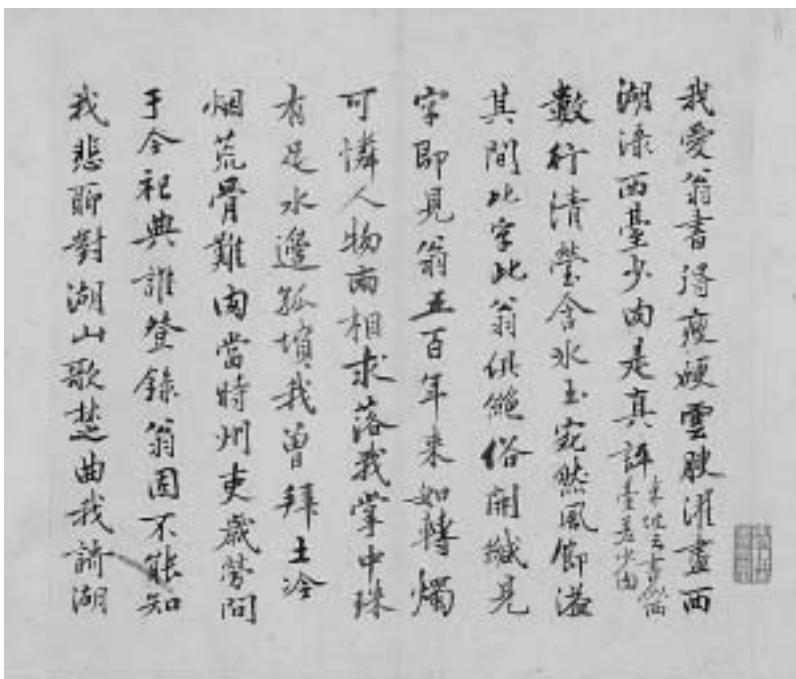 我愛翁書得瘦硬雲腴濯盡西
湖淥西臺少肉是真評東坡云書似西臺差少肉
數行清瑩含冰玉宛然風節溢
其間此字此翁俱絕俗開緘見
字即見翁五百年來如轉燭
可憐人物兩相求落我掌中珠
有足水邊孤墳我曾拜土冷
烟荒骨難肉當時州吏歲勞問
于今祀典誰登錄翁固不能知
我悲聊對湖山歌楚曲我湖